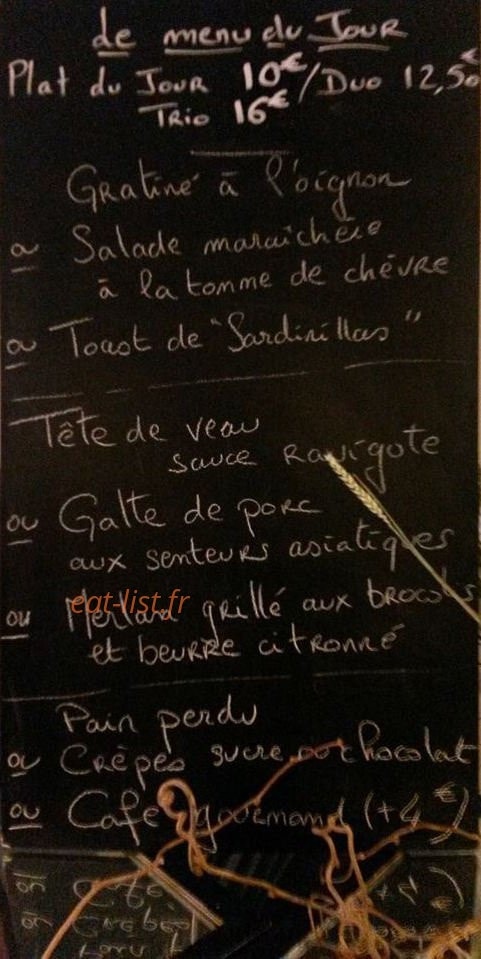 de menu du Jour
Plat du Jour 10€/Duo 12,50€
Trio 16€
Gratiné à l'oignon
ou Salade maraîchère
à la tomme de chèvre
ou Toast de "Sardinillas"
Tête de veau
sauce Ravigote
ou Galte de porc
aux senteurs asiatiques
ou Merlan grillé aux brocolis
et beurre citronné
eat-list.fr
Pain perdu
ou Crêpes sucre ou chocolat
ou Café gourmand (+4€)